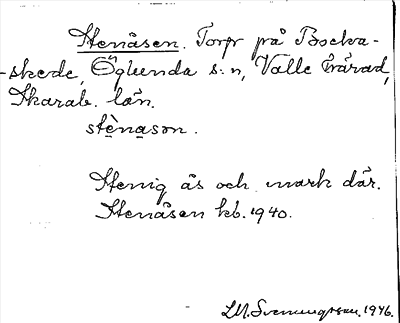 Stenåsen. Torp på Bocka-
-skede, Öglunda s:n, Valle härad,
Skarab. län.
stè̱na̱son.
Stenig ås och mark där.
Stenåsen kb. 1940.
1946.